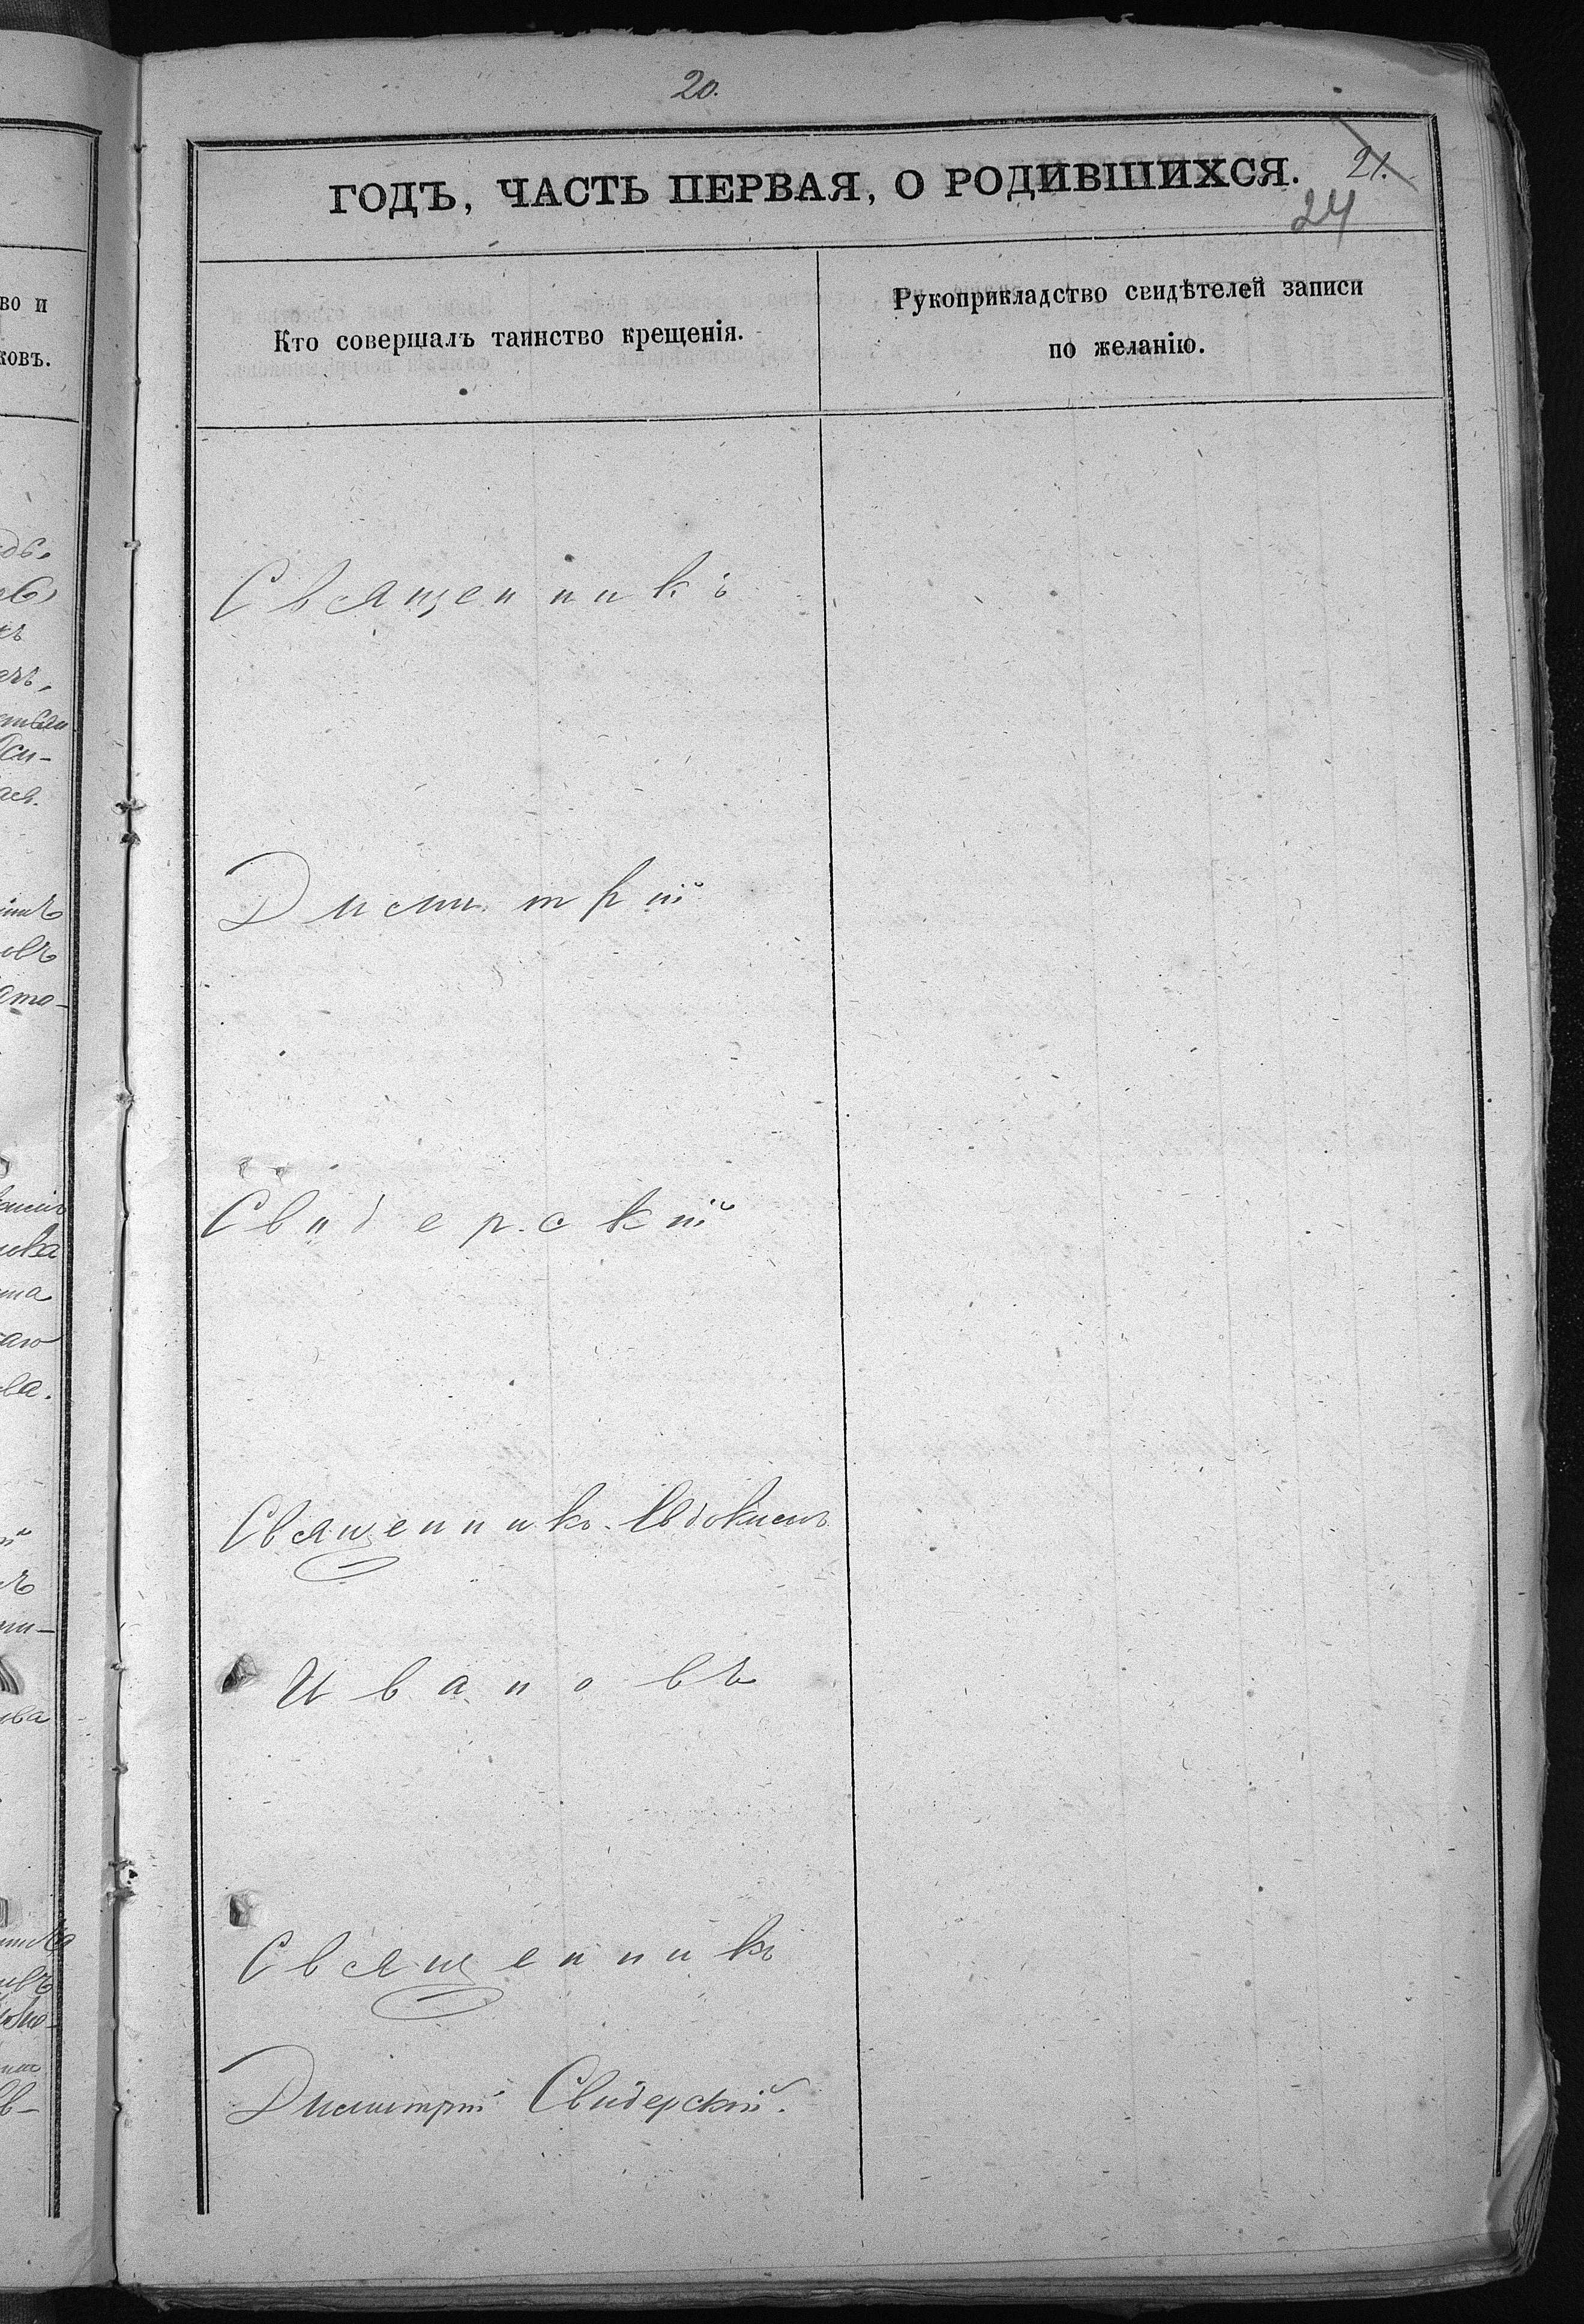 20.
ГОДЪ, ЧАСТЬ ПЕРВАЯ, О РОДИВШИХСЯ.
21.
24
Кто совершалъ таинство крещенія.
Рукоприкладство свидѣтелей записи
по желанію.
во и
ковъ.
Священникъ
Димитрій
Свидерскій
Священникъ Евдокимъ
Ивановъ
Священникъ
Димитрій Свидерскій.